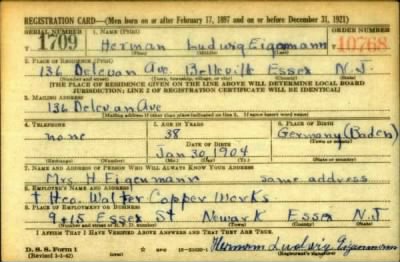 REGISTRATION CARD—(Men born on or after February 17, 1897 and on or before December 31, 1921)
SERIAL NUMBER 1. NAME (Print) ORDER NUMBER
T 1709 Herman Ludwig Eigenmann 10768
(First) (Middle) (Last)
2. PLACE OF RESIDENCE (Print)
136 Delevan Ave Belleville Essex N.J.
(Number and street) (Town, township, village, or city) (County) (State)
[THE PLACE OF RESIDENCE GIVEN ON THE LINE ABOVE WILL DETERMINE LOCAL BOARD
JURISDICTION; LINE 2 OF REGISTRATION CERTIFICATE WILL BE IDENTICAL]
3. MAILING ADDRESS
136 Delevan Ave
[Mailing address if other than place indicated on line 2. If same insert word same]
4. TELEPHONE 5. AGE IN YEARS 6. PLACE OF BIRTH
none 38 Germany (Baden)
DATE OF BIRTH
Jan 30 1904
(Exchange) (Number) (Mo.) (Day) (Yr.) (State or country)
7. NAME AND ADDRESS OF PERSON WHO WILL ALWAYS KNOW YOUR ADDRESS
Mrs H Eigenmann same address
8. EMPLOYER'S NAME AND ADDRESS
Theo. Walter Copper Works
9. PLACE OF EMPLOYMENT OR BUSINESS
Essex St Newark Essex N.J
(Number and street or R. F. D. number) (Town) (County) (State)
I AFFIRM THAT I HAVE VERIFIED ABOVE ANSWERS AND THAT THEY ARE TRUE.
D. S. S. Form 1 Hermann Ludwig Eigenmann
(Revised 1-1-42) (Registrant's signature)